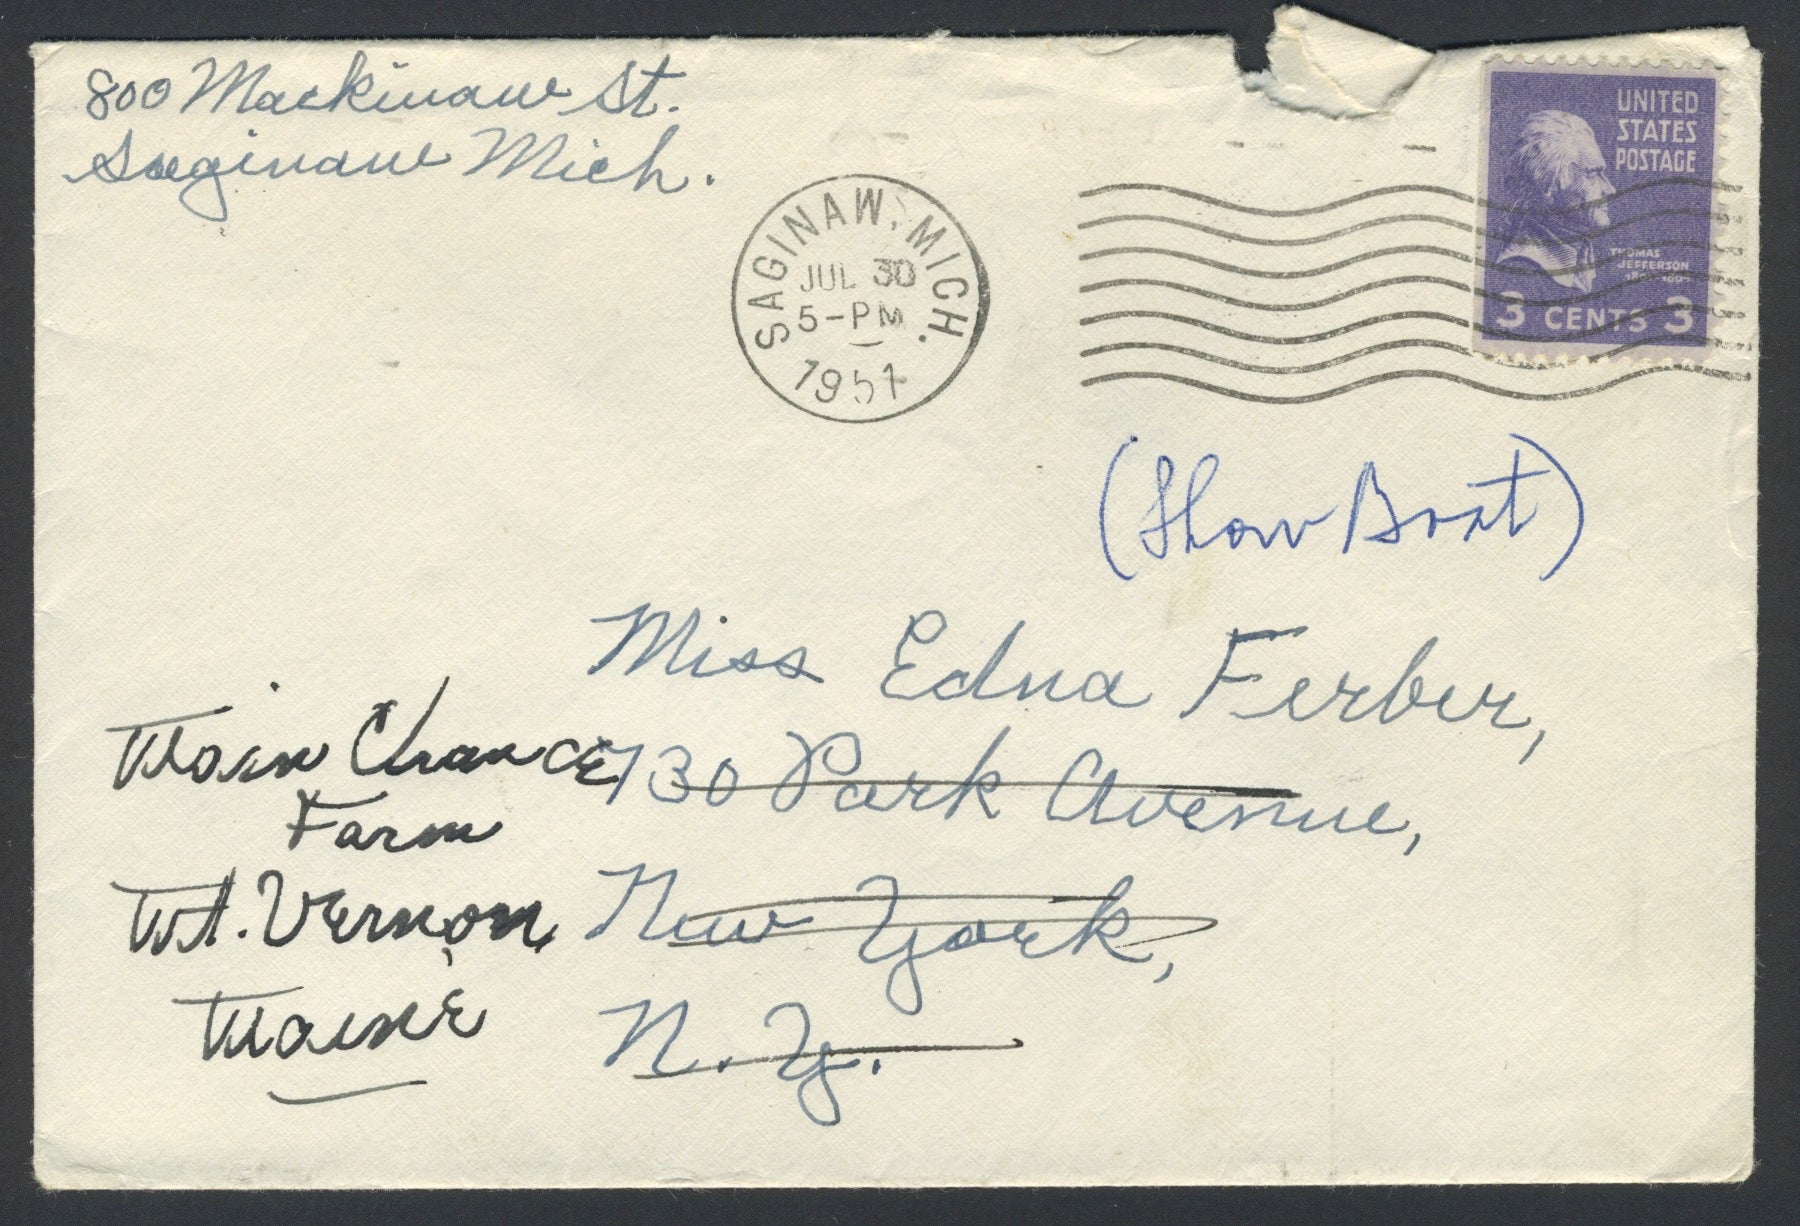 800 Mackinaw St.
Saginaw Mich.
SAGINAW, MICH.
JUL 30
5-PM
1951
UNITED
STATES
POSTAGE
THOMAS
JEFFERSON
3 CENTS 3
(Show Boat)
Miss Edna Ferber,
730 Park Avenue,
New York,
N.Y.
Main Chance
Farm
Mt. Vernon,
Maine